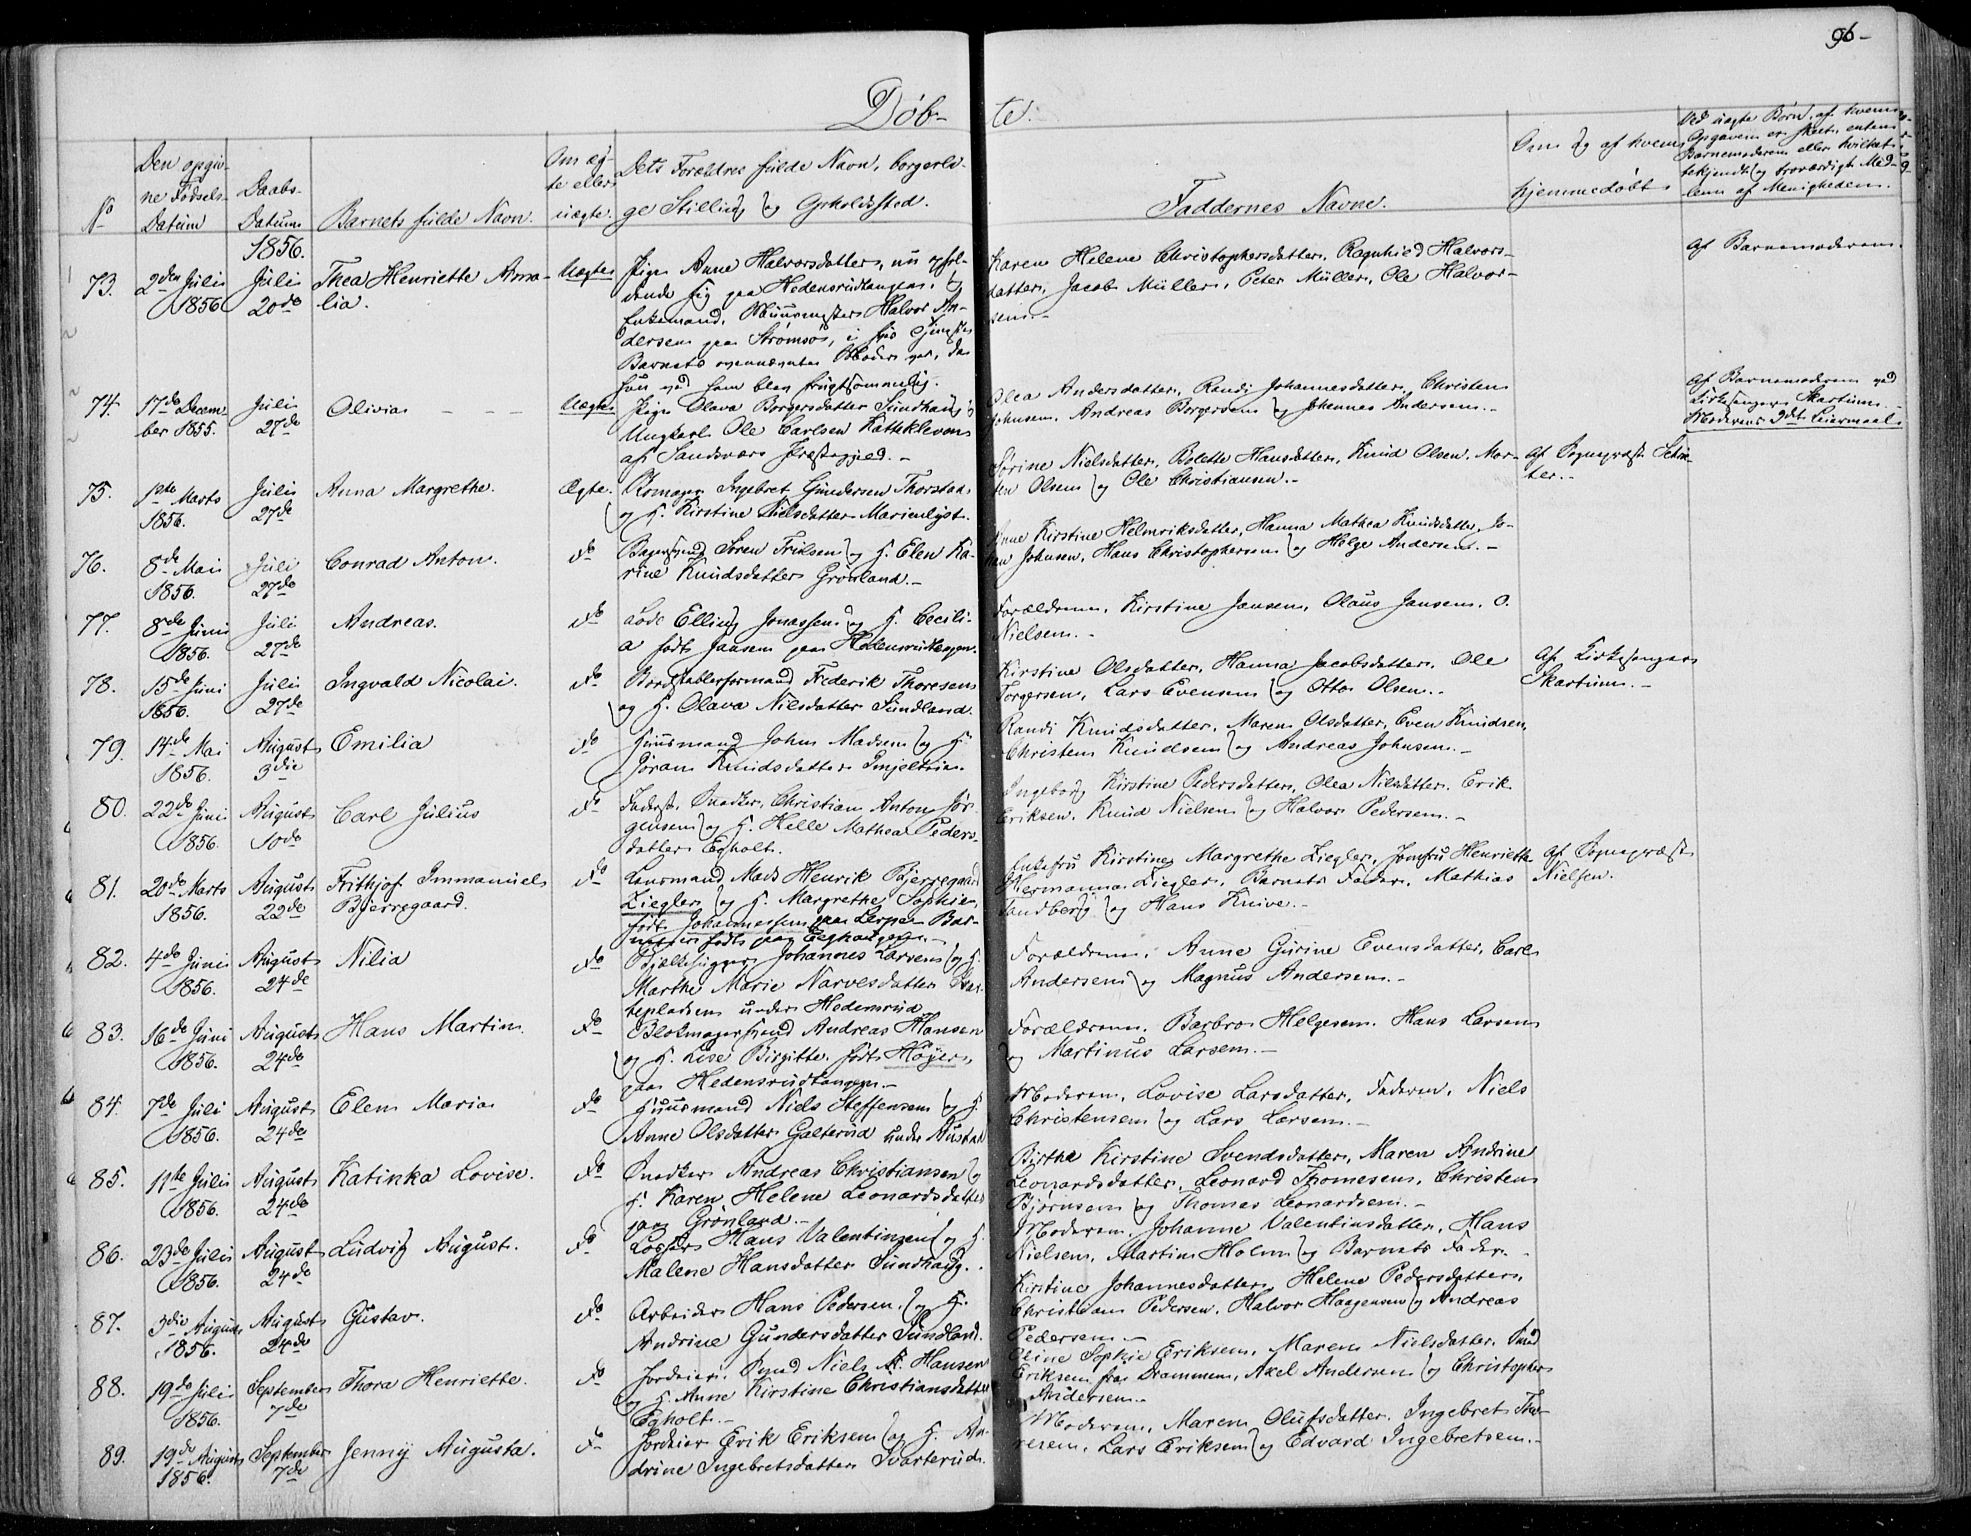 96-
Døb-
te.
No
Den opgiv-
ne Fødsels-
Datum
Daabs-
Datum
Barnets fulde Navn.
Om æg-
te eller
uægte.
Dets Forældres fulde Navn, borgerli-
ge Stilling og Opholdssted.
Faddernes Navne.
Om og af hvem
hjemmedøbt
Ved uægte Børn: af hvem
Opgaven er skeet, enten
Barnemoderen eller hvilket
bekjendt og troværdigt Med-
lem af Menigheden.
1856.
73.
2den Juli
1856
Juli
20de
Thea Henriette Ama-
lia.
Uægte
Pige Anne Halvorsdatter, nu ophol-
dende sig paa Hedensrudtangen, og
Enkemand, Muurmester Halvor An-
dersen paa Strømsø, i hvis Tjeneste
Barnets ovennævnte Moder var, da
hun ved ham blev frugtsommelig.
Karen Helene Christophersdatter, Ragnhild Halvors-
datter, Jacob Müller, Peter Müller, Ole Halvor-
sen.-
Af Barnemoderen.
74.
17de Decem-
ber 1855.
Juli
27de
Olivia
Uægte
Pige Olava Borgersdatter Sundhaug og
Ungkarl Ole Carlsen Katteklevene
af Sandsvær Præstegjeld.-
Olea Andersdatter, Randi Johannesdatter, Christen
Johnsen, Andreas Borgersen og Johannes Andersen.-
Af Barnemoderen ved
Kirkesanger Skartum.
Moderens 2det Leiermaal.
75.
1ste Marts
1856.
Juli
27de
Anna Margrethe.
Ægte.
Skomager Ingebret Gundersen Thorstad
og H. Kirstine Nielsdatter Marienlyst.
Sørine Nielsdatter, Bolette Hansdatter, Knud Olsen, Mor-
ten Olsen og Ole Christiansen.-
Af Sognepræst Schi-
ter.-
76.
8de Mai
1856.
Juli
27de
Conrad Anton.
do
Bagersvend Søren Trulsen og H. Elen Ka-
rine Knudsdatter Grønland.-
Anne Kirstine Helmriksdatter, Hanna Mathea Knudsdatter, Jo-
han Johnsen, Hans Christophersen og Helge Andersen.-
77.
8de Juni
1856.
Juli
27de
Andreas.
do
Lods Elling Jonassen og H. Cecili-
a født Jansen paa Hedensrudtangen.
Forældrene, Kirstine Jansen, Olaus Jansen, O.
Nielsen.-
78.
15de Juni
1856.
Juli
27de
Ingvald Nicolai.
do
Bordstablerformand Frederik Thoresen
og H. Olava Nilsdatter Sundland.
Kirstine Olsdatter, Hanna Jacobsdatter, Ole
Torgersen, Lars Evensen og Otto Olsen.-
Af Kirkesanger
Skartum.-
79.
14de Mai
1856.
August
3die
Emilia
do
Huusmand John Madsen og H.
Jøran Knudsdatter
Randi Knudsdatter, Maren Olsdatter, Even Knudsen,
Christen Knudsen og Andreas Johnsen.-
80.
22de Juni
1856.
August
10de
Carl Julius
do
Snedker Christian Anton Jør-
gensen og H. Helle Mathea Peders-
datter Egholt.
Ingeborg Kirstine Pedersdatter, Olea Nilsdatter, Erik
Eriksen, Knud Nielsen og Halvor Pedersen.-
81.
20de Marts
1856.
August
22de
Frithjof Immanuel
Bjerregaard.
do
Lensmand Mads Henrik Bjerregaard
Ziegler og H. Margrethe Sophie,
født Johannessen paa Lerpen. Bar-
Enkefru Kirstine Margrethe Ziegler, Jomfru Henriette
Hermanna Ziegler, Barnets Fader, Mathias
Tandberg og Hans Knive.-
Af Sognepræst
Nielsen.
82.
4de Juni
1856.
August
24de
Nilia
do
Bjælkehugger Johannes Larsen og H.
Marthe Marie Narvesdatter
tepladsen under Hedensrud
Forældrene, Anne Gurine Evensdatter, Carl
Andersen og Magnus Andersen.-
83.
16de Juni
1856.
August
24de
Hans Martin
do
Blokmagersvend Andreas Hansen
og H. Lise Birgitte født Høyer,
paa Hedensrudtangen.-
Forældrene, Barbro Helgesen, Hans Larsen
og Martinus Larsen.-
84.
7de Juli
1856.
August
24de
Elen Maria
do
Huusmand Niels Steffensen og H.
Anne Olsdatter Galterud under Austad
Moderen, Lovise Larsdatter, Faderen, Niels
Christensen og Lars Larsen.-
85.
11te Juli
1856.
August
24de
Katinka Lovise.
do
Snedker Andreas Christiansen og
H. Karen Helene Leonardsdatter
paa Grønland.-
Birthe Kirstine Svendsdatter, Maren Andrine
Leonardsdatter, Leonard Thomesen, Christen
Bjørnsen og Thomas Leonardsen.-
86.
23de Juli
1856.
August
24de
Ludvig August.
do
Losser Hans Valentinsen og H.
Malene Hansdatter Sundhaug.
Moderen, Johanne Valentinsdatter, Hans
Nielsen, Martin Holm og Barnets Fader.-
87.
3die August
1856.
August
24de
Gustav.
do
Arbeider Hans Pedersen og H.
Andrine Gundersdatter Sundland.
Kirstine Johannesdatter, Helene Pedersdatter,
Christian Pedersen, Halvor Haagensen og Andreas
Pedersen.-
88.
19de Juli
1856.
September
7de
Thora Henriette.
do
Jordeier, Smed Niels A. Hansen
og H. Anne Kirstine Christiansdatter
Egholt.-
Oline Sophie Eriksen, Maren Nielsdatter, Smed
Eriksen fra Drammen, Axel Andersen og Christopher
Andersen.-
89.
19de August
1856.
September
7de
Jenny Augusta.
do
Jordeier Erik Eriksen og H. An-
drine Ingebretsdatter Svarterud.
Moderen, Maren Olufsdatter, Ingebret Tho-
resen, Lars Eriksen og Edvard Ingebretsen.-